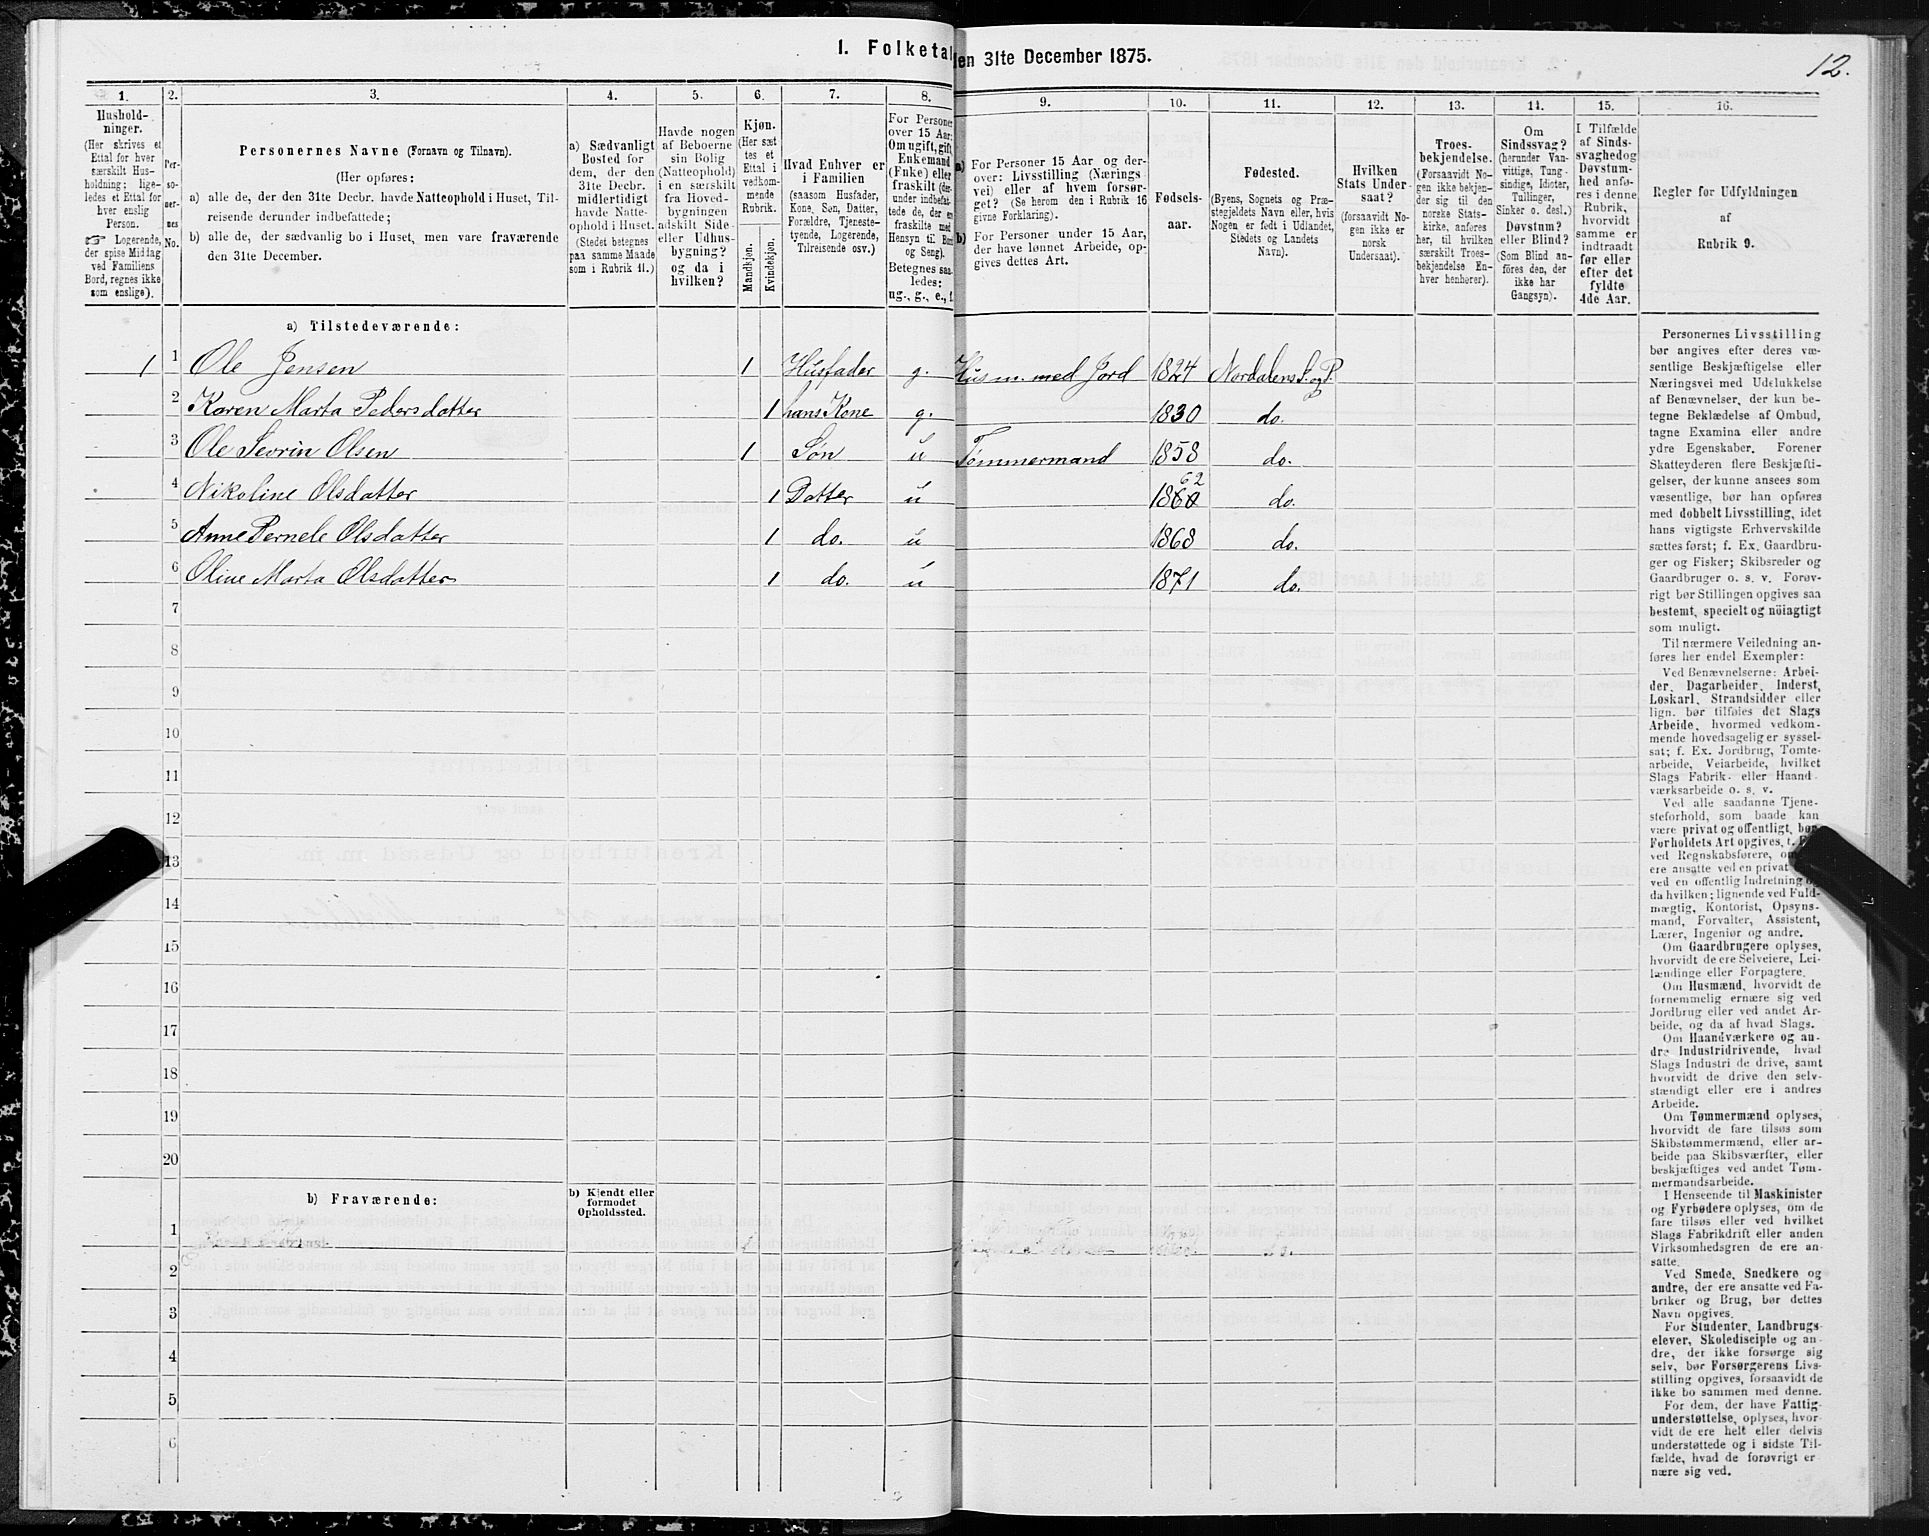 1. Folketal
den 31te December 1875.
12.
1.
2.
3.
4.
5.
6.
7.
8.
9.
10.
11.
12.
13.
14.
15.
16.
Hushold-
ninger.
(Her skrives et
Ettal for hver
særskilt Hus-
holdning; lige-
ledes et Ettal for
hver enslig
Person.
☞ Logerende,
der spise Middag
ved Familiens
Bord, regnes ikke
som enslige).
Per-
so-
ner-
nes
No.
Personernes Navne (Fornavn og Tilnavn).
(Her opføres:
a) alle de, der den 31te Decbr. havde Natteophold i Huset, Til-
reisende derunder indbefattede;
b) alle de, der sædvanlig bo i Huset, men vare fraværende
den 31te December.
a) Sædvanligt
Bosted for
dem, der den
31te Decbr.
midlertidigt
havde Natte-
ophold i Huset.
(Stedet betegnes
paa samme Maade
som i Rubrik 11.)
Havde nogen
af Beboerne
sin Bolig
(Natteophold)
i en særskilt
fra Hoved-
bygningen
adskilt Side-
eller Udhus-
bygning?
og da i
hvilken?
Kjøn.
(Her sæt
tes et
Ettal i
vedkom-
mende
Rubrik.
Mandkjøn.
Kvindekjøn.
Hvad Enhver er
i Familien
(saasom Husfader,
Kone, Søn, Datter,
Forældre, Tjeneste-
tyende, Logerende,
Tilreisende osv.)
For Personer
over 15 Aar:
Om ugift, gift,
Enkemand
(Enke) eller
fraskilt (der-
under indbefat-
tede de, der en
fraskilte med
Hensyn til Bord
og Seng).
Betegnes saa-
ledes:
ug., g., e., f.
a) For Personer 15 Aar og der-
over: Livsstilling (Nærings-
vei) eller af hvem forsør-
get? (Se herom den i Rubrik 16
givne Forklaring).
b) For Personer under 15 Aar,
der have lønnet Arbeide, op-
gives dettes Art.
Fødsels-
aar.
Fødested.
(Byens, Sognets og Præ-
stegjeldets Navn eller, hvis
Nogen er født i Udlandet,
Stedets og Landets
Navn).
Hvilken
Stats Under-
saat?
(forsaavidt No-
gen ikke er
norsk
Undersaat).
Troes-
bekjendelse.
(Forsaavidt No-
gen ikke bekjen-
der sig til den
norske Stats-
kirke, anføres
her, til hvilken
særskilt Troes-
bekjendelse En-
hver henhører).
Om
Sindssvag?
(herunder Van-
vittige, Tung-
sindige, Idioter,
Tullinger,
Sinker o. desl.)
Døvstum?
eller Blind?
(Som Blind an-
føres den, der
ikke har
Gangsyn).
I Tilfælde
af Sinds-
svaghed og
Døvstum-
hed anfø-
res i denne
Rubrik,
hvorvidt
samme er
indtraadt
før eller
efter det
fyldte
4de Aar.
Regler for Udfyldningen
af
Rubrik 9.
a) Tilstedeværende:
1 1 Ole Jensen 1 Husfader g. Husm. med Jord 1824 Nordalens S. og P.
2 Karen Marta Pedersdatter 1 hans Kone g. 1830 do.
3 Ole Sevrin Olsen 1 Søn u Tømmermand 1858 do.
62
4 Nikoline Olsdatter 1 Datter u 1860 do.
5 Anne Pernele Olsdatter 1 do. u 1868 do.
6 Oline Marta Olsdatter 1 do. u 1871 do.
7
8
9
10
11
12
13
14
15
16
17
18
19
20
b) Fraværende:
b) Kjendt eller
formodet
Opholdssted.
1
2
3
4
5
6
Personernes Livsstilling
bør angives efter deres væ-
sentlige Beskjæftigelse eller
Næringsvei med Udelukkelse
af Benævnelser, der kun be-
tegne Beklædelse af Ombud,
tagne Examina eller andre
ydre Egenskaber. Forener
Skatteyderen flere Beskjæfti-
gelser, der kunne ansees som
væsentlige, bør han opføres
med dobbelt Livsstilling, idet
hans vigtigste Erhvervskilde
sættes først; f. Ex. Gaardbru-
ger og Fisker; Skibsreder og
Gaardbruger o. s. v. Forøv-
rigt bør Stillingen opgives saa
bestemt, specielt og nöiagtigt
som muligt.
Til nærmere Veiledning an-
føres her endel Exempler:
Ved Benævnelserne: Arbei-
der, Dagarbeider, Inderst,
Løskarl, Strandsidder eller
lign. bør tilføies det Slags
Arbeide, hvormed vedkom-
mende hovedsagelig er syssel-
sat; f. Ex. Jordbrug, Tomte-
arbeide, Veiarbeide, hvilket
Slags Fabrik- eller Haand-
værksarbeide o. s. v.
Ved alle saadanne Tjene-
steforhold, som baade kan
være privat og offentligt, bør
Forholdets Art opgives, f.
ved Regnskabsførere, om
ere ansatte ved en privat
ved en offentlig Indretning
da hvilken; lignende ved Fuld-
mægtig, Kontorist, Opsyns-
mand, Forvalter, Assistent,
Lærer, Ingeniør og andre.
Om Gaardbrugere oplyses,
hvorvidt de ere Selveiere, Lei-
lændinge eller Forpagtere.
Om Husmænd, hvorvidt de
fornemmelig ernære sig ved
Jordbrug eller ved andet Ar-
beide, og da af hvad Slags.
Om Haandværkere og an-
dre Industridrivende, hvad
Slags Industri de drive, samt
hvorvidt de drive den selv-
stændigt eller ere i andres
Arbeide.
Om Tømmermænd oplyses,
hvorvidt de fare tilsøs som
Skibstømmermænd, eller ar-
beide paa Skibsværfter, eller
beskjæftiges ved andet Tøm-
mermandsarbeide.
I Henseende til Maskinister
og Fyrbødere oplyses, om de
fare tilsøs eller ved hvilket
Slags Fabrikdrift eller anden
Virksomhedsgren de ere an-
satte.
Ved Smede, Snedkere og
andre, der ere ansatte ved Fa-
briker og Brug, bør dettes
Navn opgives.
For Studenter, Landbrugs-
elever, Skoledisciple og an-
dre, der ikke forsørge sig
selv, bør Forsørgerens Livs-
stilling opgives, forsaavidt de
ikke bo sammen med denne.
For dem, der have Fattig-
understøttelse, oplyses, hvor-
vidt de ere helt eller delvis
understøttede og i sidste Til-
fælde, hvad de forøvrigt er-
nære sig ved.